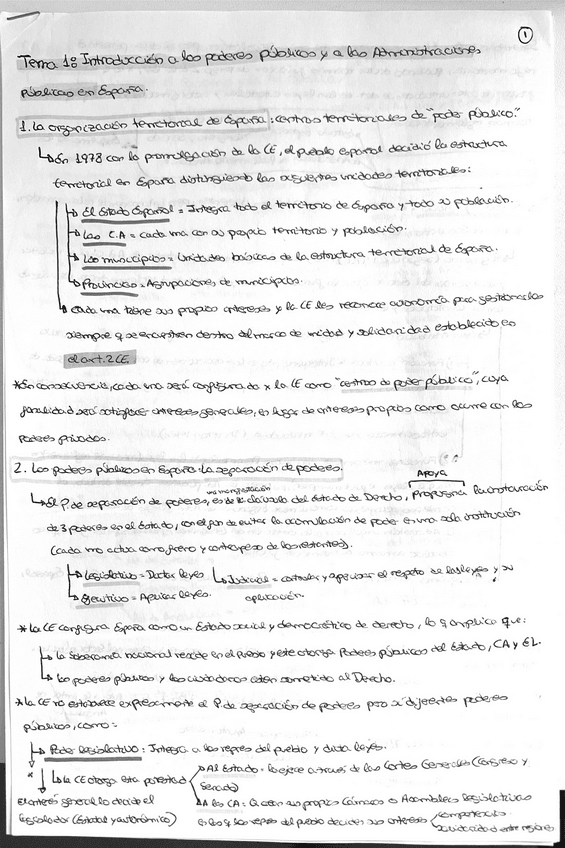 1
Tema 1: Introducción a los poderes públicos y a las Administraciones
públicas en España.
1. La organización territorial de España: centros territoriales de "poder público".
En 1978 con la promulgación de la CE, el pueblo español decidió la estructura
territorial en España distinguiendo las siguientes unidades territoriales:
El Estado Español = Integra todo el territorio de España y toda su población.
Las C.A = cada una con su propio territorio y población.
Los municipios = Unidades básicas de la estructura territorial de España.
Provincias = Agrupaciones de municipios.
Cada una tiene sus propios intereses y la CE les reconoce autonomía para gestionarlos
siempre q se encuentren dentro del marco de unidad y solidaridad establecido en
el art. 2 CE.
*En consecuencia, cada una será configurada x la CE como "centros de poder público", cuya
finalidad será satisfacer intereses generales, en lugar de intereses propios como ocurre con los
Poderes privados.
2. Los poderes públicos en España: la separación de poderes.
Apoya
una manifestación
El P. de separación de poderes, es de la cláusula del Estado de Derecho, propugna la instauración
de 3 poderes en el Estado, con el fin de evitar la acumulación de poder en una sola institución
(cada uno actua como freno y contrapeso de los restantes).
Legislativo = Dictar leyes Judicial = controlar y asegurar el respeto de las leyes y su
Ejecutivo = Aplicar leyes. aplicación.
* La CE configura España como un Estado social y democrático de derecho, lo q implica que:
La soberanía nacional reside en el Pueblo y este otorga Poderes públicos del Estado, CA y EL.
Los poderes públicos y los ciudadanos están sometido al Derecho.
* La CE no establece expresamente el P. de separación de poderes pero si diferentes poderes
públicos, como:
Poder legislativo: Integra a los repres del pueblo y dicta leyes.
* La CE otorga esta potestad Al Estado = la ejerce a través de las Cortes Generales (Congreso y
Senado)
El interés general lo decide el A las CA: Crean sus propias Cámaras o Asambleas legislativas
legislador (estatal y autonómico) en las q los repres del pueblo deciden sus intereses competencias
solidaridad entre regiones